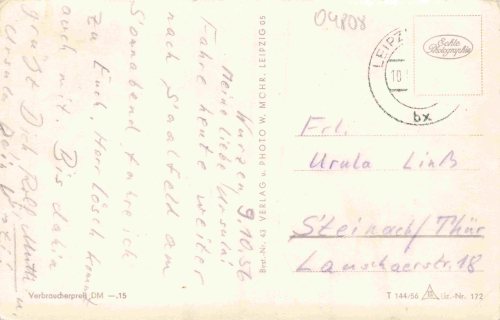 Wurzen 9.10.56
Meine liebe Ursula!
Fahre heute weiter
nach Saalfeld am
Sonnabend fahre ich
zu Euch, Horr kommt
auch mit. Bis dahin
grüßt Dich Rolf Mutti u.
Ursula
04808
LEIPZ
10
bx
Echte
Photographie
Frl.
Ursula Linß
Steinach/Thür
Lauschaerstr. 18
Best.-Nr. 43 VERLAG u. PHOTO W. MOHR, LEIPZIG 05
Verbraucherpreis DM —.15
T 144/56 Liz.-Nr. 172